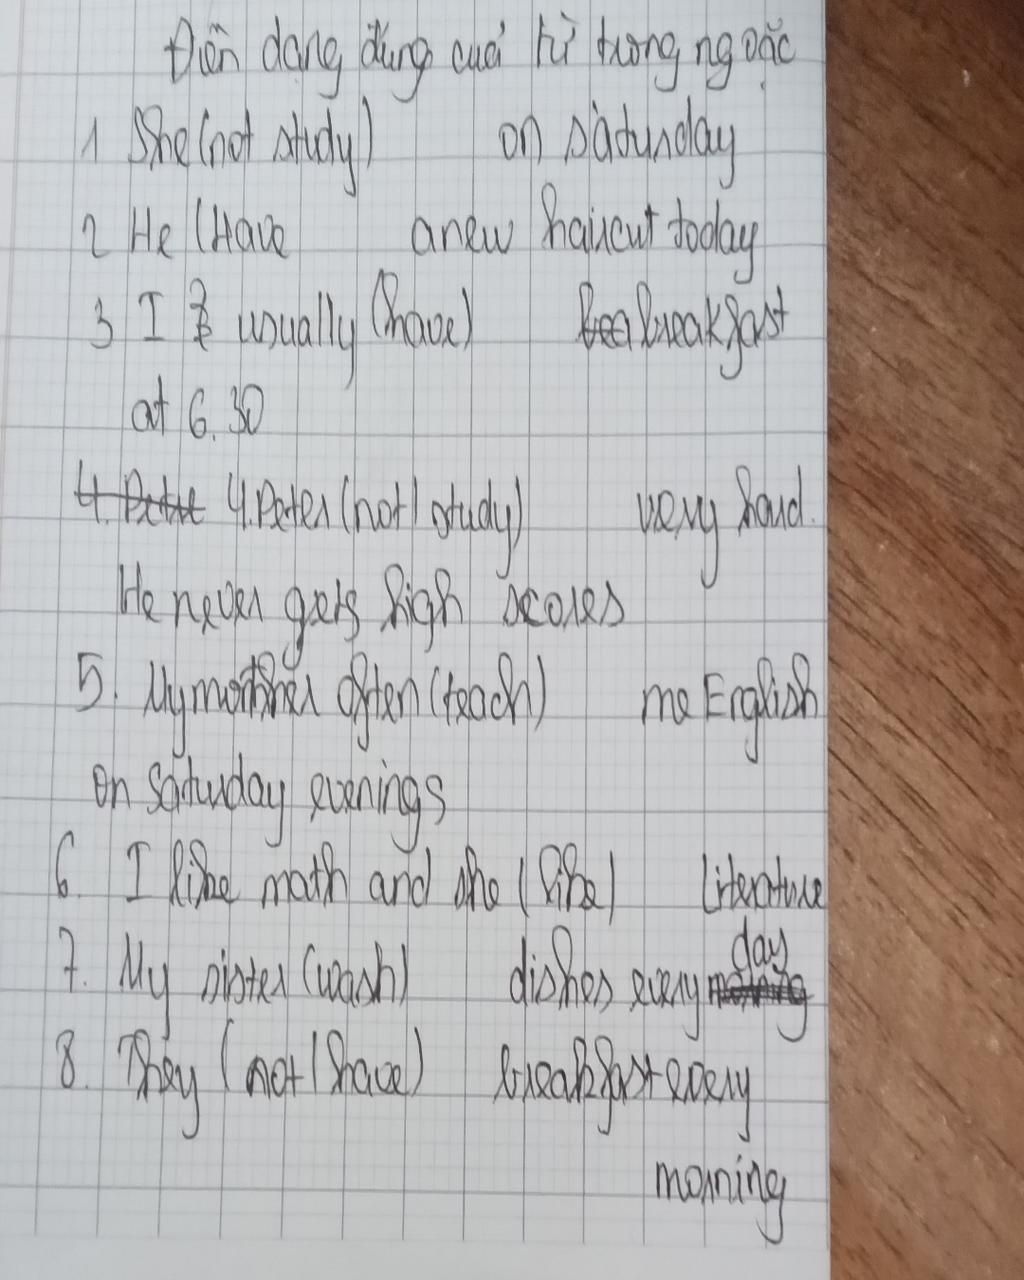 Điền dạng đúng của từ trong ngoặc
1 She (not study) on Saturday
2 He (Have a new haircut today
3 I usually (have) breakfast
at 6.30
4. Peter (not / study) very hard.
He never gets high scores
5. My mother often (teach) me English
on Saturday evenings
6. I like math and she (like) Literature
7. My sister (wash) dishes every day
8. They (not / have) breakfast every
morning